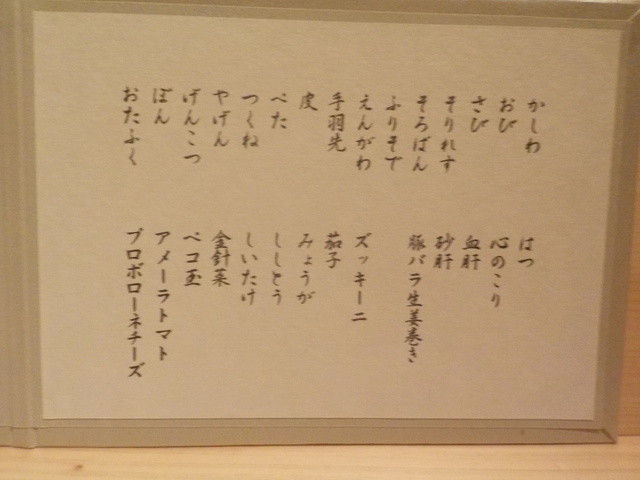 かしわ
おび
さび
そりれす
そろばん
ふりそで
えんがわ
手羽先
皮
ぺた
つくね
やげん
げんこつ
ぼん
おたふく
はつ
心のこり
血肝
砂肝
豚バラ生姜巻き
ズッキーニ
茄子
みょうが
ししとう
しいたけ
金針菜
ペコ玉
アメーラトマト
プロボローネチーズ